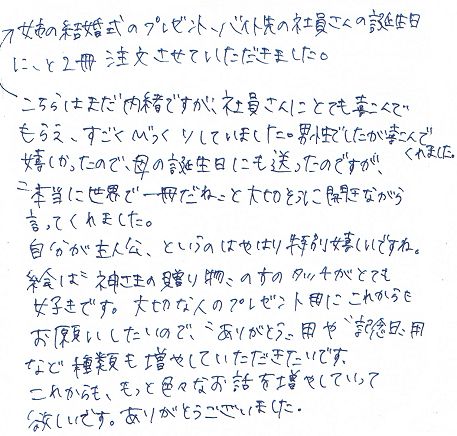 姉の結婚式のプレゼント、バイト先の社員さんの誕生日
に、と2冊 注文させていただきました。
こちらはまだ内緒ですが、社員さんにとても喜こんで
もらえ、すごくびっくりしていました。男性でしたが喜こんで
くれました。
嬉しかったので、母の誕生日にも送ったのですが、
"本当に世界で一冊だね"と大切そうに開きながら
言ってくれました。
自分が主人公、というのはやはり特別嬉しいですね。
絵は"神さまの贈り物"の方のタッチがとても
好きです。大切な人のプレゼント用にこれからも
お願いしたいので、"ありがとう"用や"記念日"用
など種類も増やしていただきたいです。
これからも、もっと色々なお話を増やしていって
欲しいです。ありがとうございました。